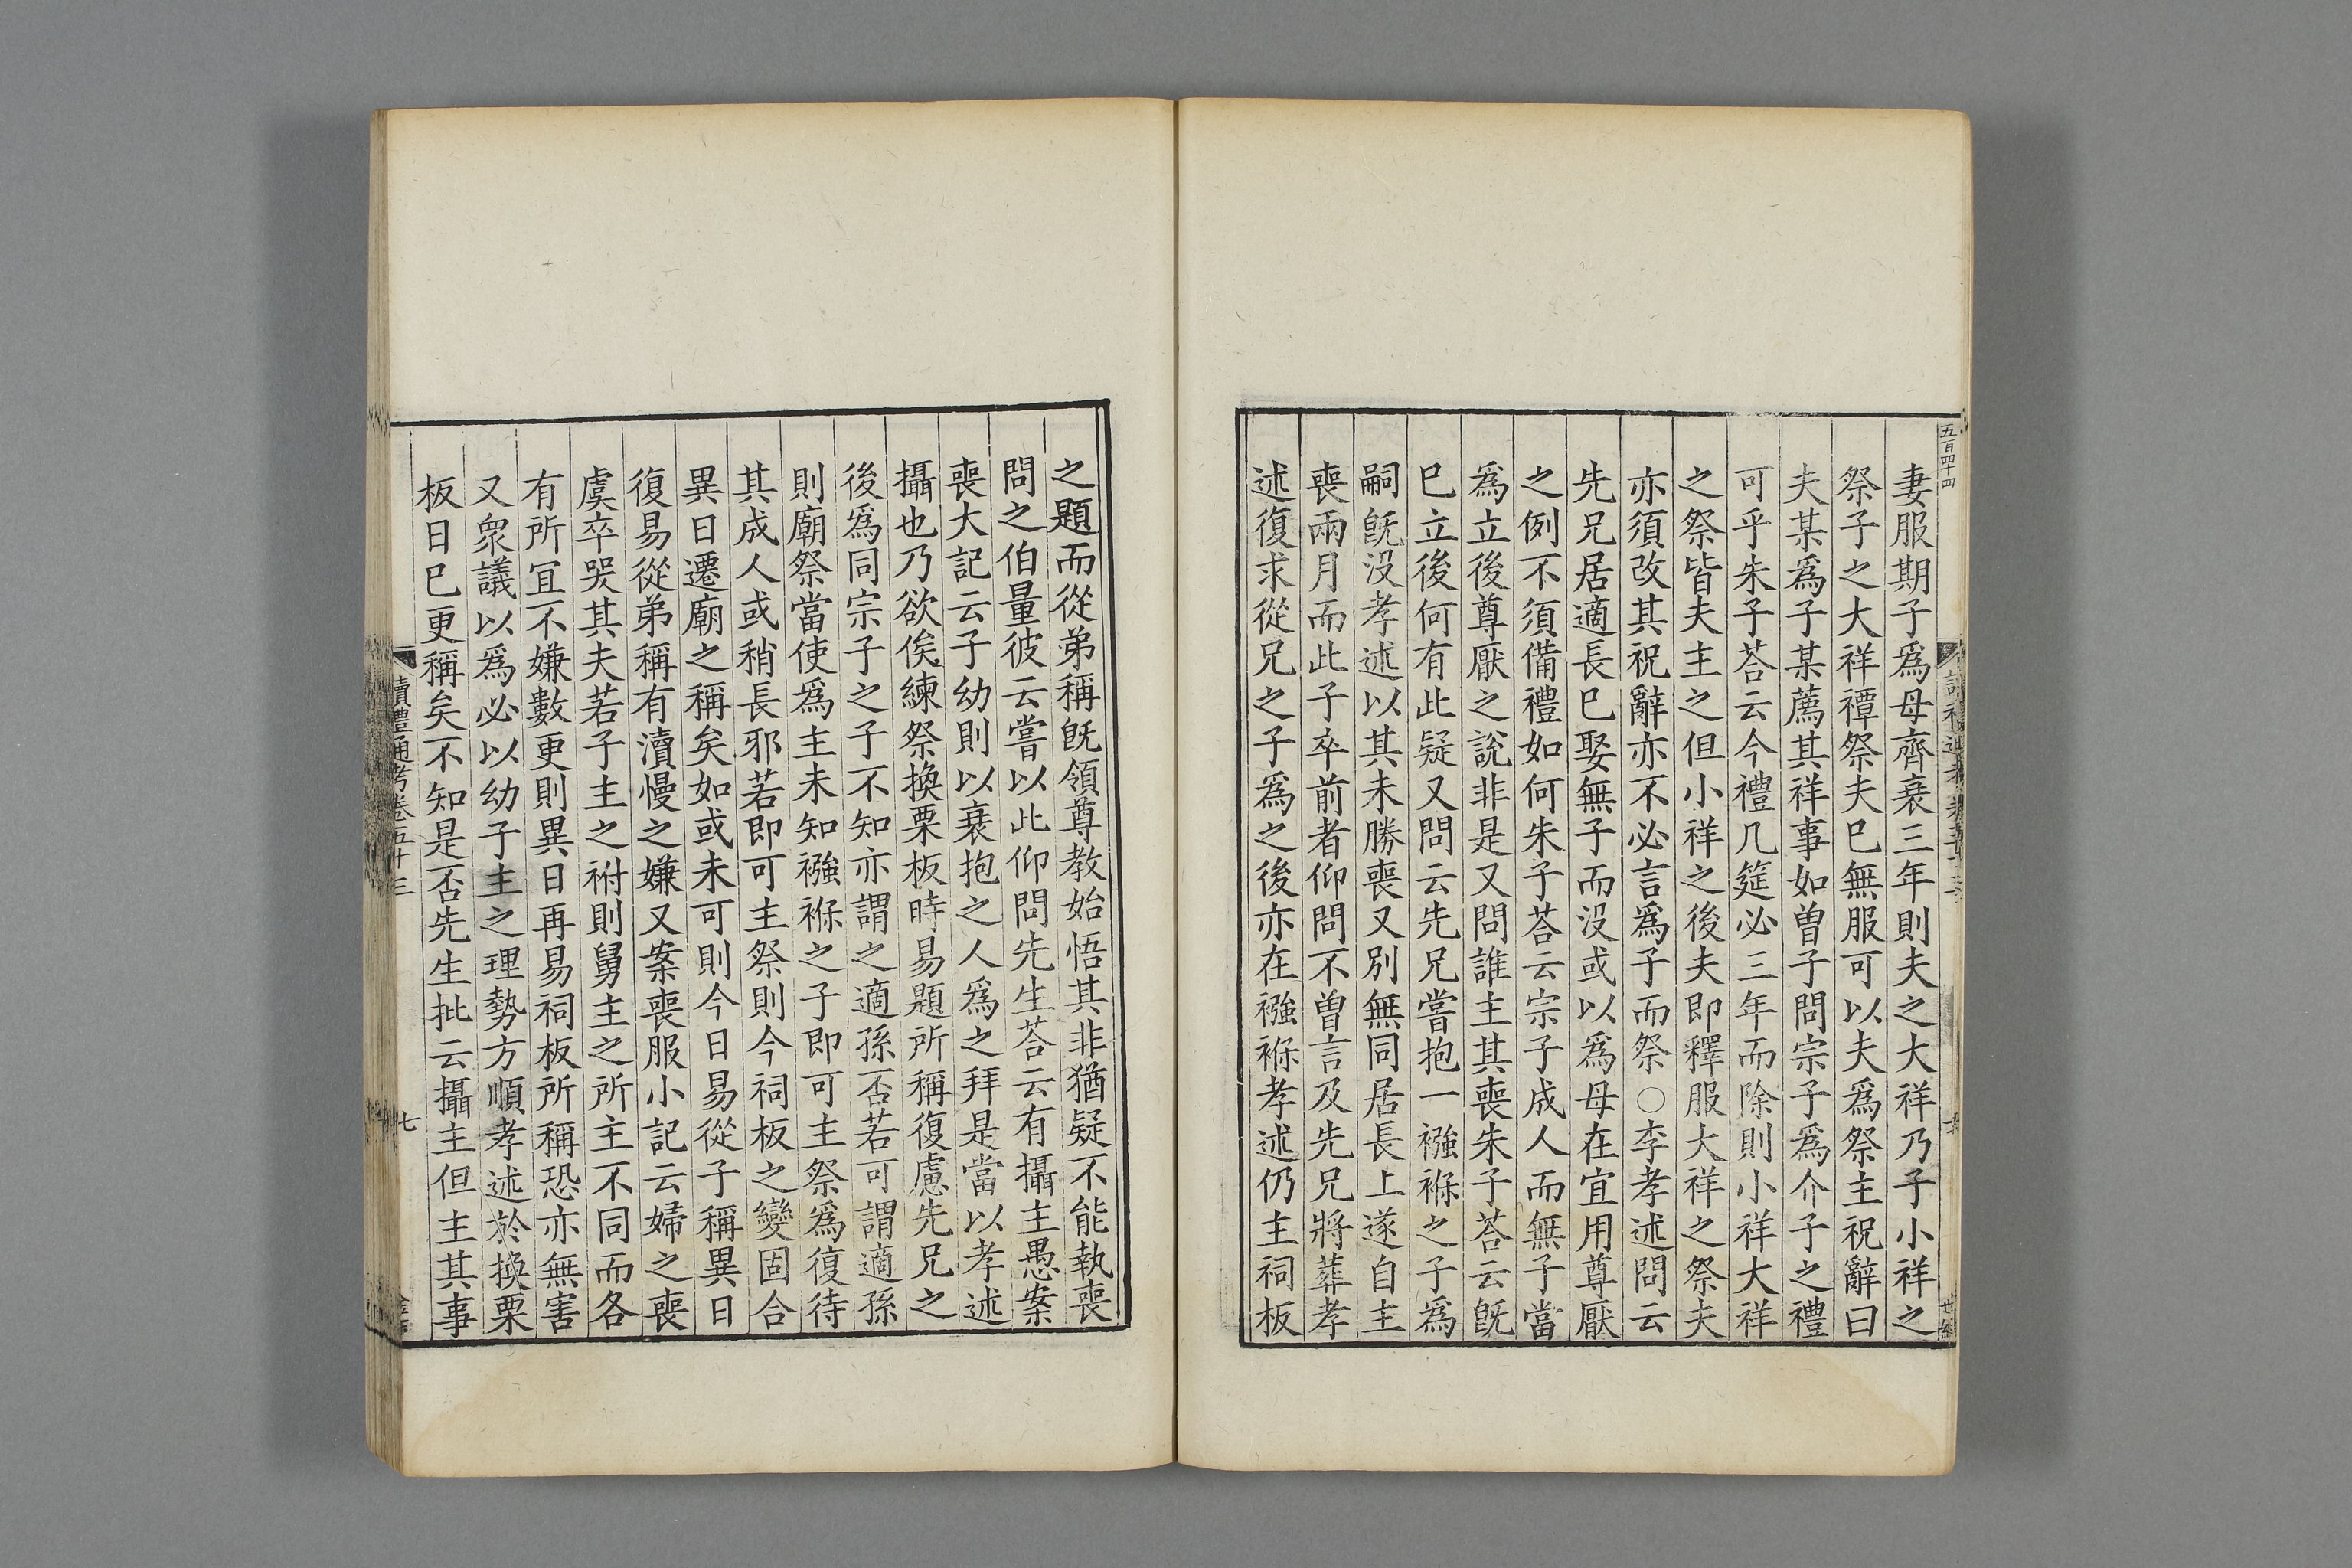 五百四十四
妻服期子爲母齊衰三年則夫之大祥乃子小祥之
祭子之大祥禫祭夫巳無服可以夫爲祭主祝辭曰
夫某爲子某薦其祥事如曾子問宗子爲介子之禮
可乎朱子荅云今禮几筵必三年而除則小祥大祥
之祭皆夫主之但小祥之後夫即釋服大祥之祭夫
亦須改其祝辭亦不必言爲子而祭○李孝述問云
先兄居適長巳娶無子而没或以爲母在宜用尊厭
之例不須備禮如何朱子荅云宗子成人而無子當
爲立後尊厭之說非是又問誰主其喪朱子荅云旣
巳立後何有此疑又問云先兄嘗抱一襁褓之子爲
嗣旣没孝述以其未勝喪又别無同居長上遂自主
喪兩月而此子卒前者仰問不曾言及先兄將葬孝
述復求從兄之子爲之後亦在襁褓孝述仍主祠板
之題而從弟稱旣領尊教始悟其非猶疑不能執喪
問之伯量彼云嘗以此仰問先生荅云有攝主愚案
喪大記云子幼則以衰抱之人爲之拜是當以孝述
攝也乃欲俟練祭換栗板時易題所稱復慮先兄之
後爲同宗子之子不知亦謂之適孫否若可謂適孫
則廟祭當使爲主未知襁褓之子即可主祭爲復待
其成人或稍長邪若即可主祭則今祠板之變固合
異日遷廟之稱矣如或未可則今日易從子稱異日
復易從弟稱有瀆慢之嫌又案喪服小記云婦之喪
虞卒哭其夫若子主之祔則舅主之所主不同而各
有所宜不嫌數更則異日再易祠板所稱恐亦無害
又衆議以爲必以幼子主之理勢方順孝述於換栗
板日巳更稱矣不知是否先生批云攝主但主其事
讀禮通考卷五十三
七